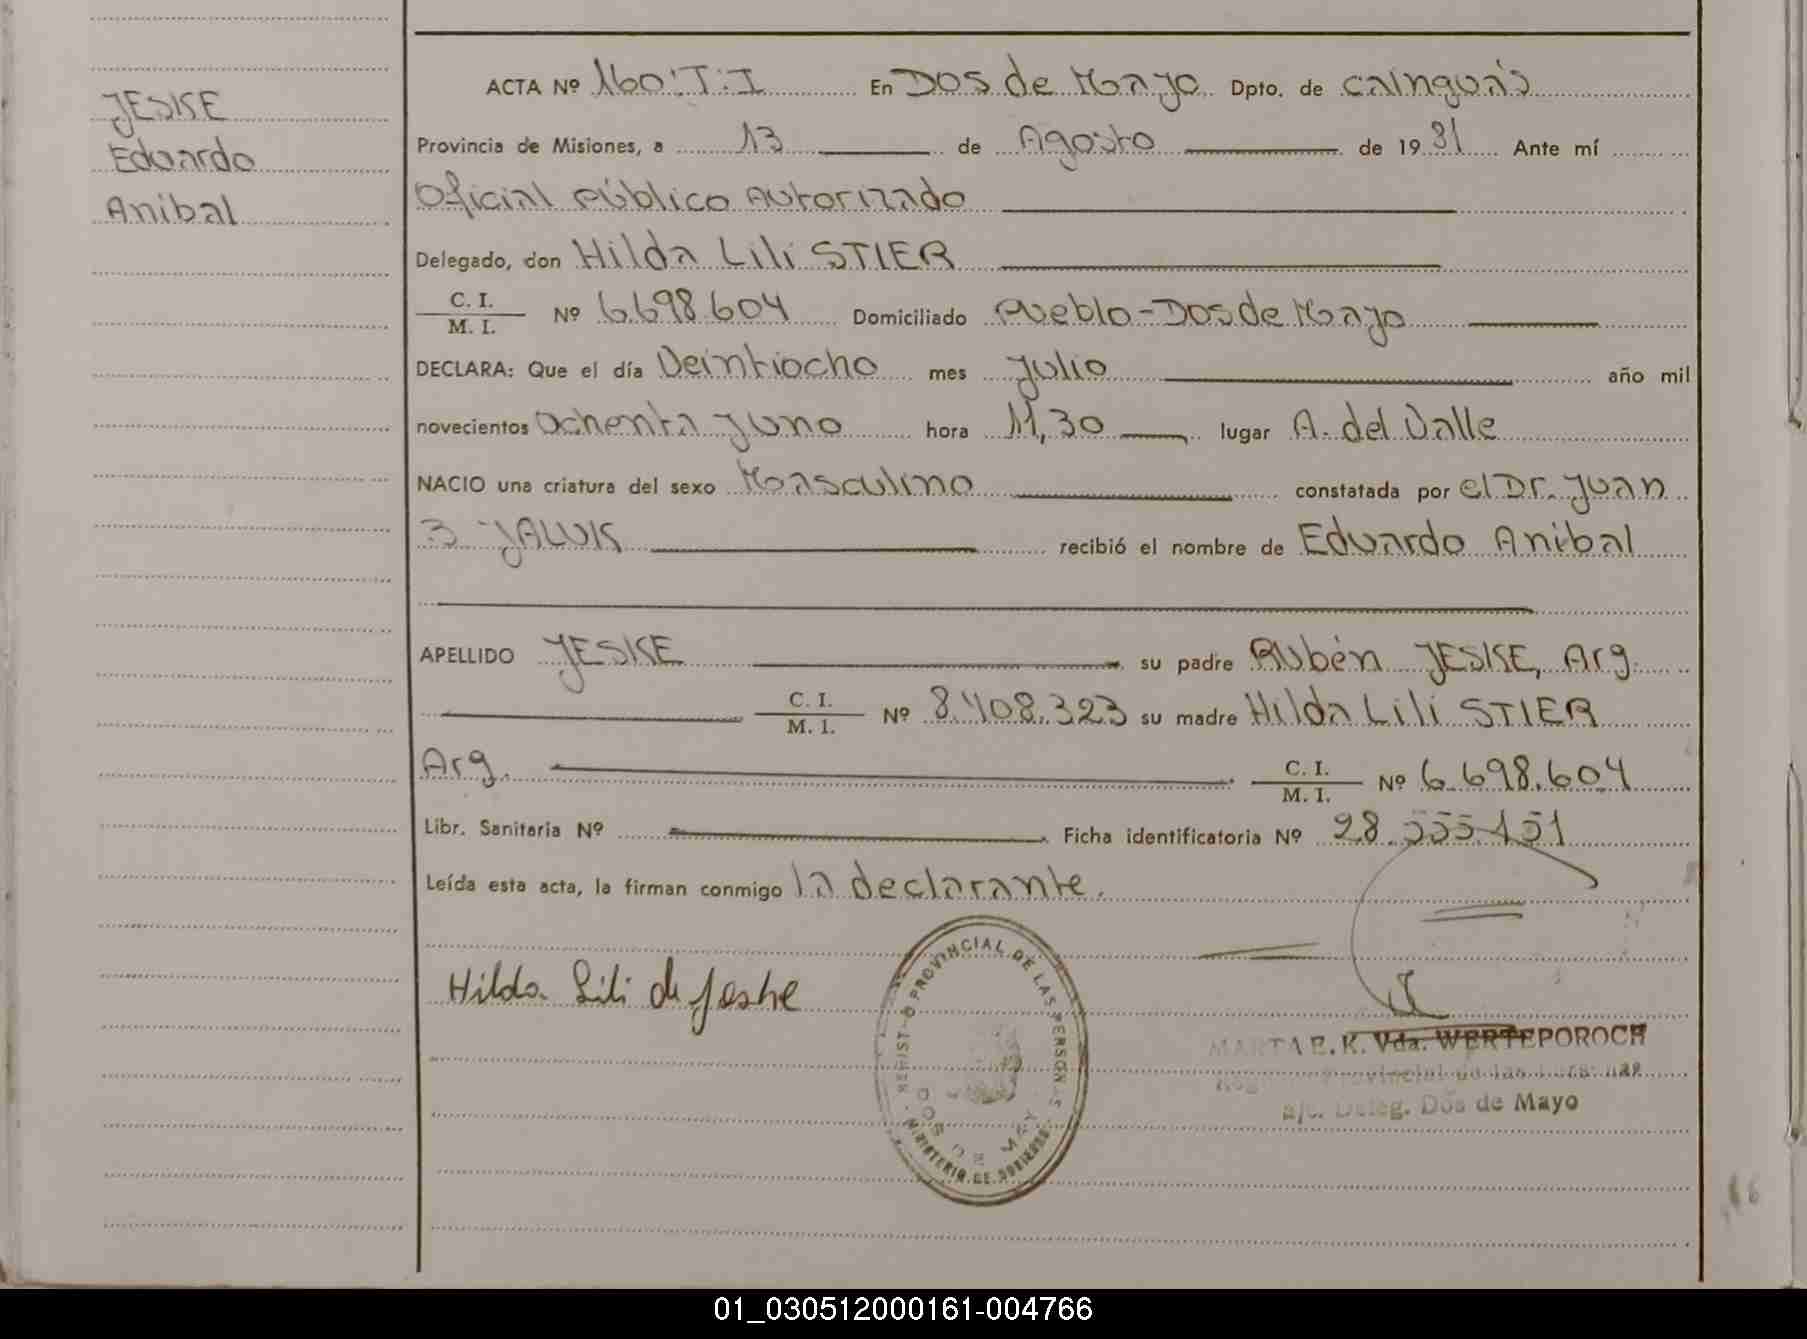 JESKE
Eduardo
Anibal
ACTA Nº 160:T:I En Dos de Mayo Dpto. de Cainguás
Provincia de Misiones, a 13 de Agosto de 1981 Ante mí
Oficial Público Autorizado
Delegado, don Hilda Lili STIER
C. I.
M. I. Nº 6.698.604 Domiciliado Pueblo-Dos de Mayo
DECLARA: Que el día Veintiocho mes Julio año mil
novecientos Ochenta y uno hora 11,30 lugar A. del Valle
NACIO una criatura del sexo Masculino constatada por el Dr. Juan
recibió el nombre de Eduardo Anibal
APELLIDO JESKE su padre Rubén JESKE, Arg.
C. I.
M. I. Nº 8.408.323 su madre Hilda Lili STIER
Arg. C. I.
M. I. Nº 6.698.604
Libr. Sanitaria Nº Ficha identificatoria Nº 28.555.151
Leída esta acta, la firman conmigo la declarante.
Hilda Lili de Jeske
REGISTRO PROVINCIAL DE LAS PERSONAS
DOS DE MAYO
MINISTERIO DE GOBIERNO
MARTA E. K. Vda. WERTEPOROCH
Registro Provincial de las Personas
a/c. Deleg. Dos de Mayo
01_030512000161-004766